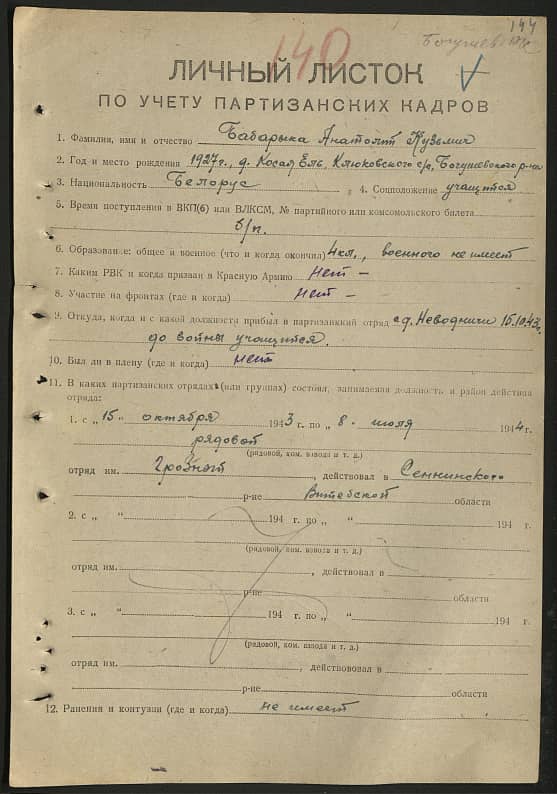 144
140
Богушев
ЛИЧНЫЙ ЛИСТОК
ПО УЧЕТУ ПАРТИЗАНСКИХ КАДРОВ
1. Фамилия, имя и отчество Бабарыка Анатолий Кузьмич
2. Год и место рождения 1927г., д. Косал Ель, Клюковского с/с, Богушевского р-на
3. Национальность Белорус, 4. Соцположение учащийся
5. Время поступления в ВКП(б) или ВЛКСМ, № партийного или комсомольского билета
б/п.
6. Образование: общее и военное (что и когда окончил) 4кл., военного не имеет
7. Каким РВК и когда призван в Красную Армию нет –
8. Участие на фронтах (где и когда) нет –
9. Откуда, когда и с какой должности прибыл в партизанский отряд с д. Неводничи 15.10.43г.
до войны учащийся.
10. Был ли в плену (где и когда) нет
11. В каких партизанских отрядах (или группах) состоял, занимаемая должность и район действия
отряда:
1. с „15“ октября 1943 г. по „8. июля 1944 г.
рядовой
(рядовой, ком. взвода и т. д.)
отряд им. Грозный, действовал в Сеннинского
р-не Витебской области
2. с „ “ 194 г. по „ “ 194 г.
(рядовой, ком. взвода и т. д.)
отряд им. , действовал в
р-не области
3. с „ “ 194 г. по „ “ 194 г.
(рядовой, ком. взвода и т. д.)
отряд им. , действововал в
р-не области
12. Ранения и контузии (где и когда) не имеет